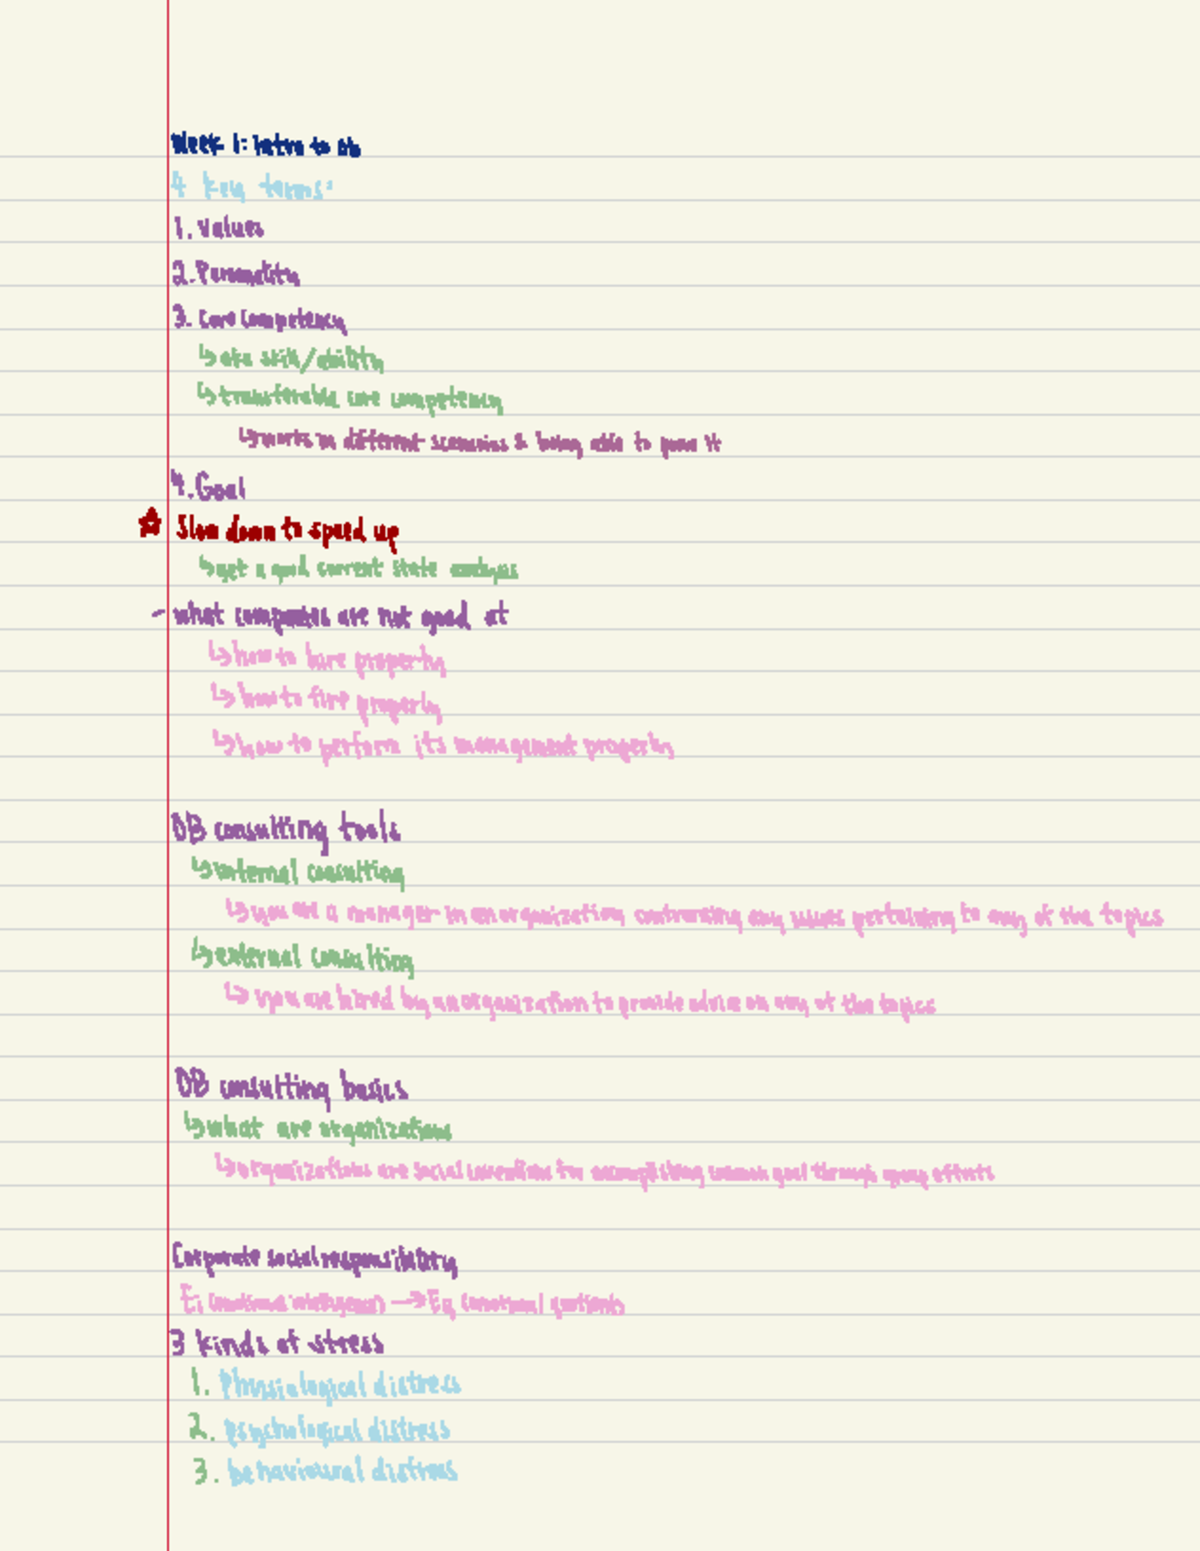 Week 1: Intro to ob
4 key terms:
1. Values
2. Personality
3. Core Competency
↳ aka skill/ability
↳ transferable core competency
↳ works in different scenarios & being able to prove it
4. Goal
☆ Slow down to speed up
↳ get a good current state analysis
- what companies are not good at
↳ how to hire properly
↳ how to fire properly
↳ how to perform its management properly
OB consulting tools
↳ internal consulting
↳ you are a manager in an organization any issues pertaining to any of the topics
↳ external consulting
↳ you are hired by an organization to provide advice on any of the topics
OB consulting basics
↳ what are organizations
↳ organizations are social inventions for accomplishing common goal through group efforts
Corporate social responsibility
Ei (emotional intelligence) → Eq (emotional quotient)
3 kinds of stress
1. Physiological distress
2. psychological distress
3. behavioural distress